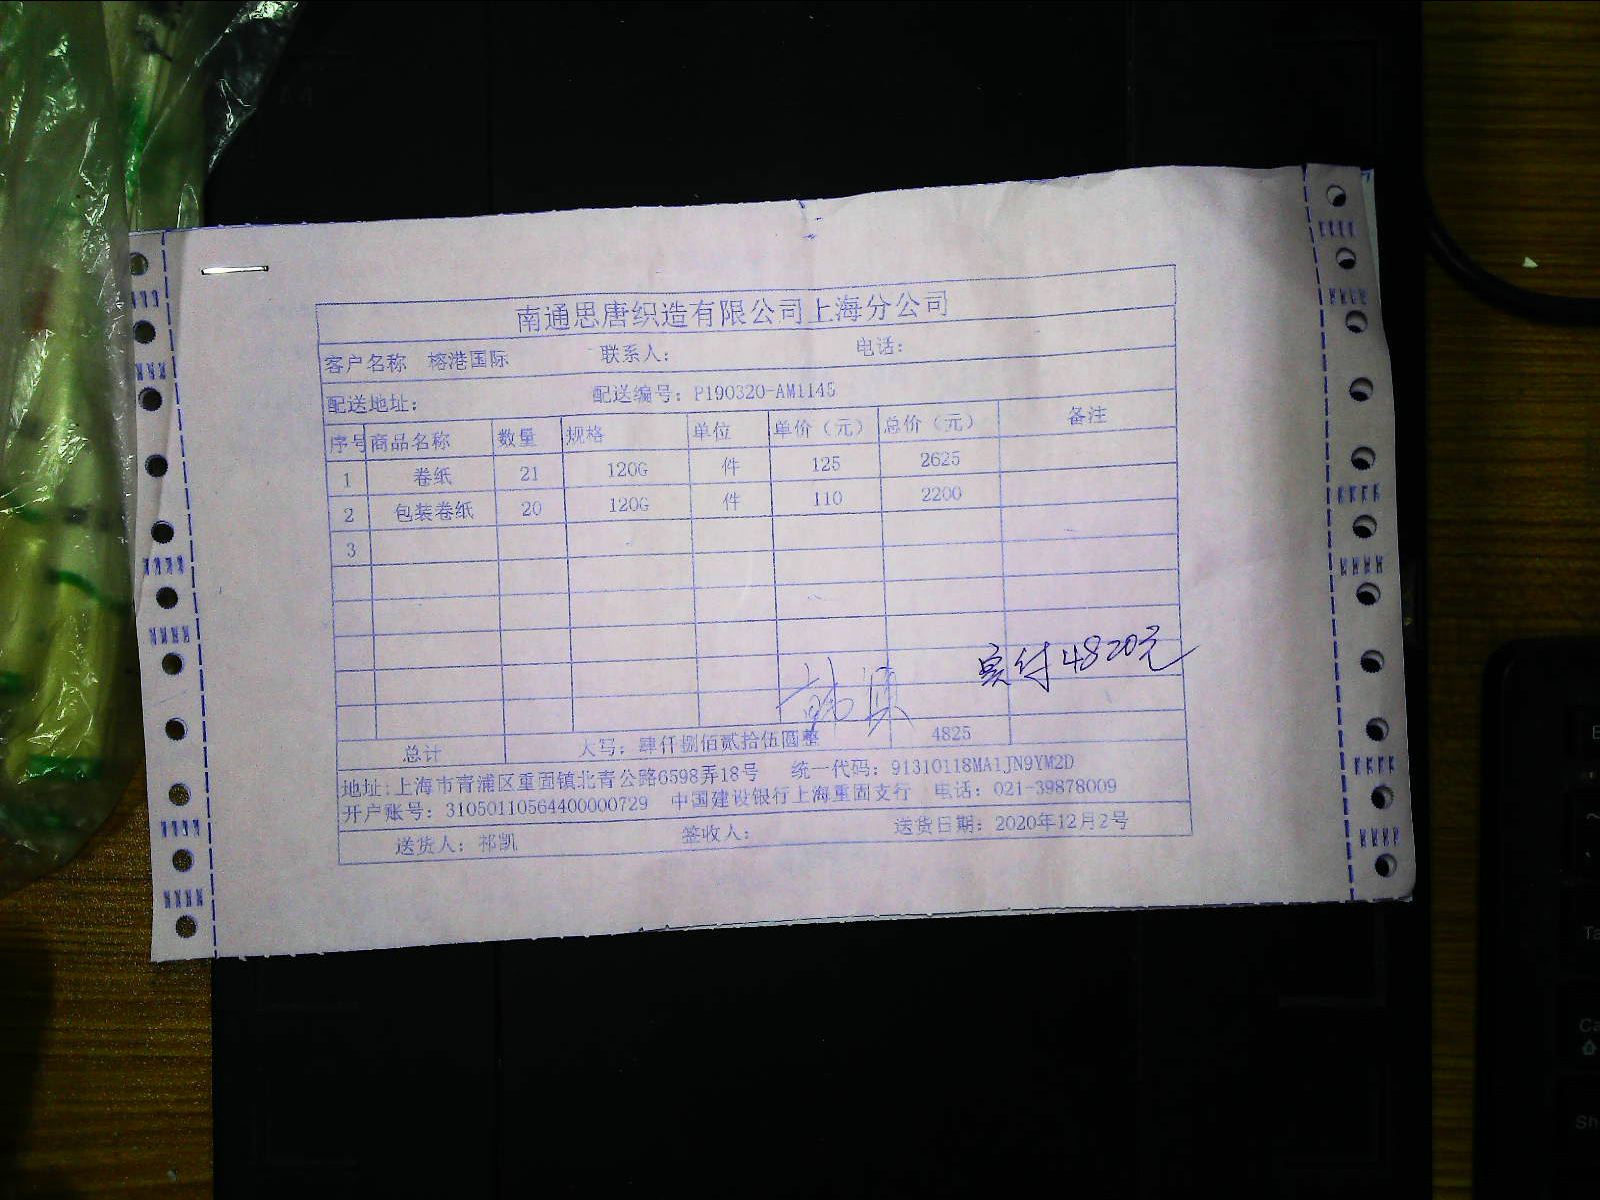 南通思唐织造有限公司上海分公司
客户名称 榕港国际 联系人: 电话:
配送地址: 配送编号: P190320-AM1145
序号 商品名称 数量 规格 单位 单价（元） 总价（元） 备注
1 卷纸 21 120G 件 125 2625
2 包装卷纸 20 120G 件 110 2200
3
实付4820元
总计 大写: 肆仟捌佰贰拾伍圆整 4825
地址:上海市青浦区重固镇北青公路6598弄18号 统一代码: 91310118MA1JN9YM2D
开户账号: 31050110564400000729 中国建设银行上海重固支行 电话: 021-39878009
送货人: 祁凯 签收人: 送货日期: 2020年12月2号